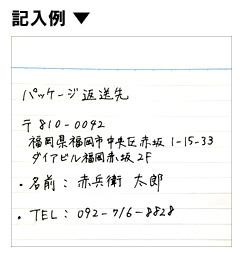 記入例 ▼
パッケージ返送先
〒810-0042
福岡県福岡市中央区赤坂 1-15-33
ダイアビル福岡赤坂 2F
・名前 : 赤兵衛 太郎
・TEL : 092-716-8828